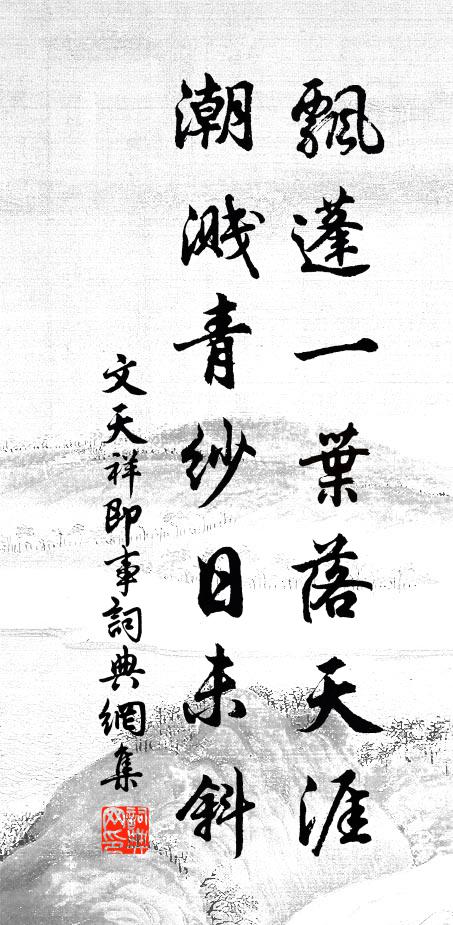 飄蓬一葉落天涯
潮濺青紗日未斜
文天祥即事詞典網集